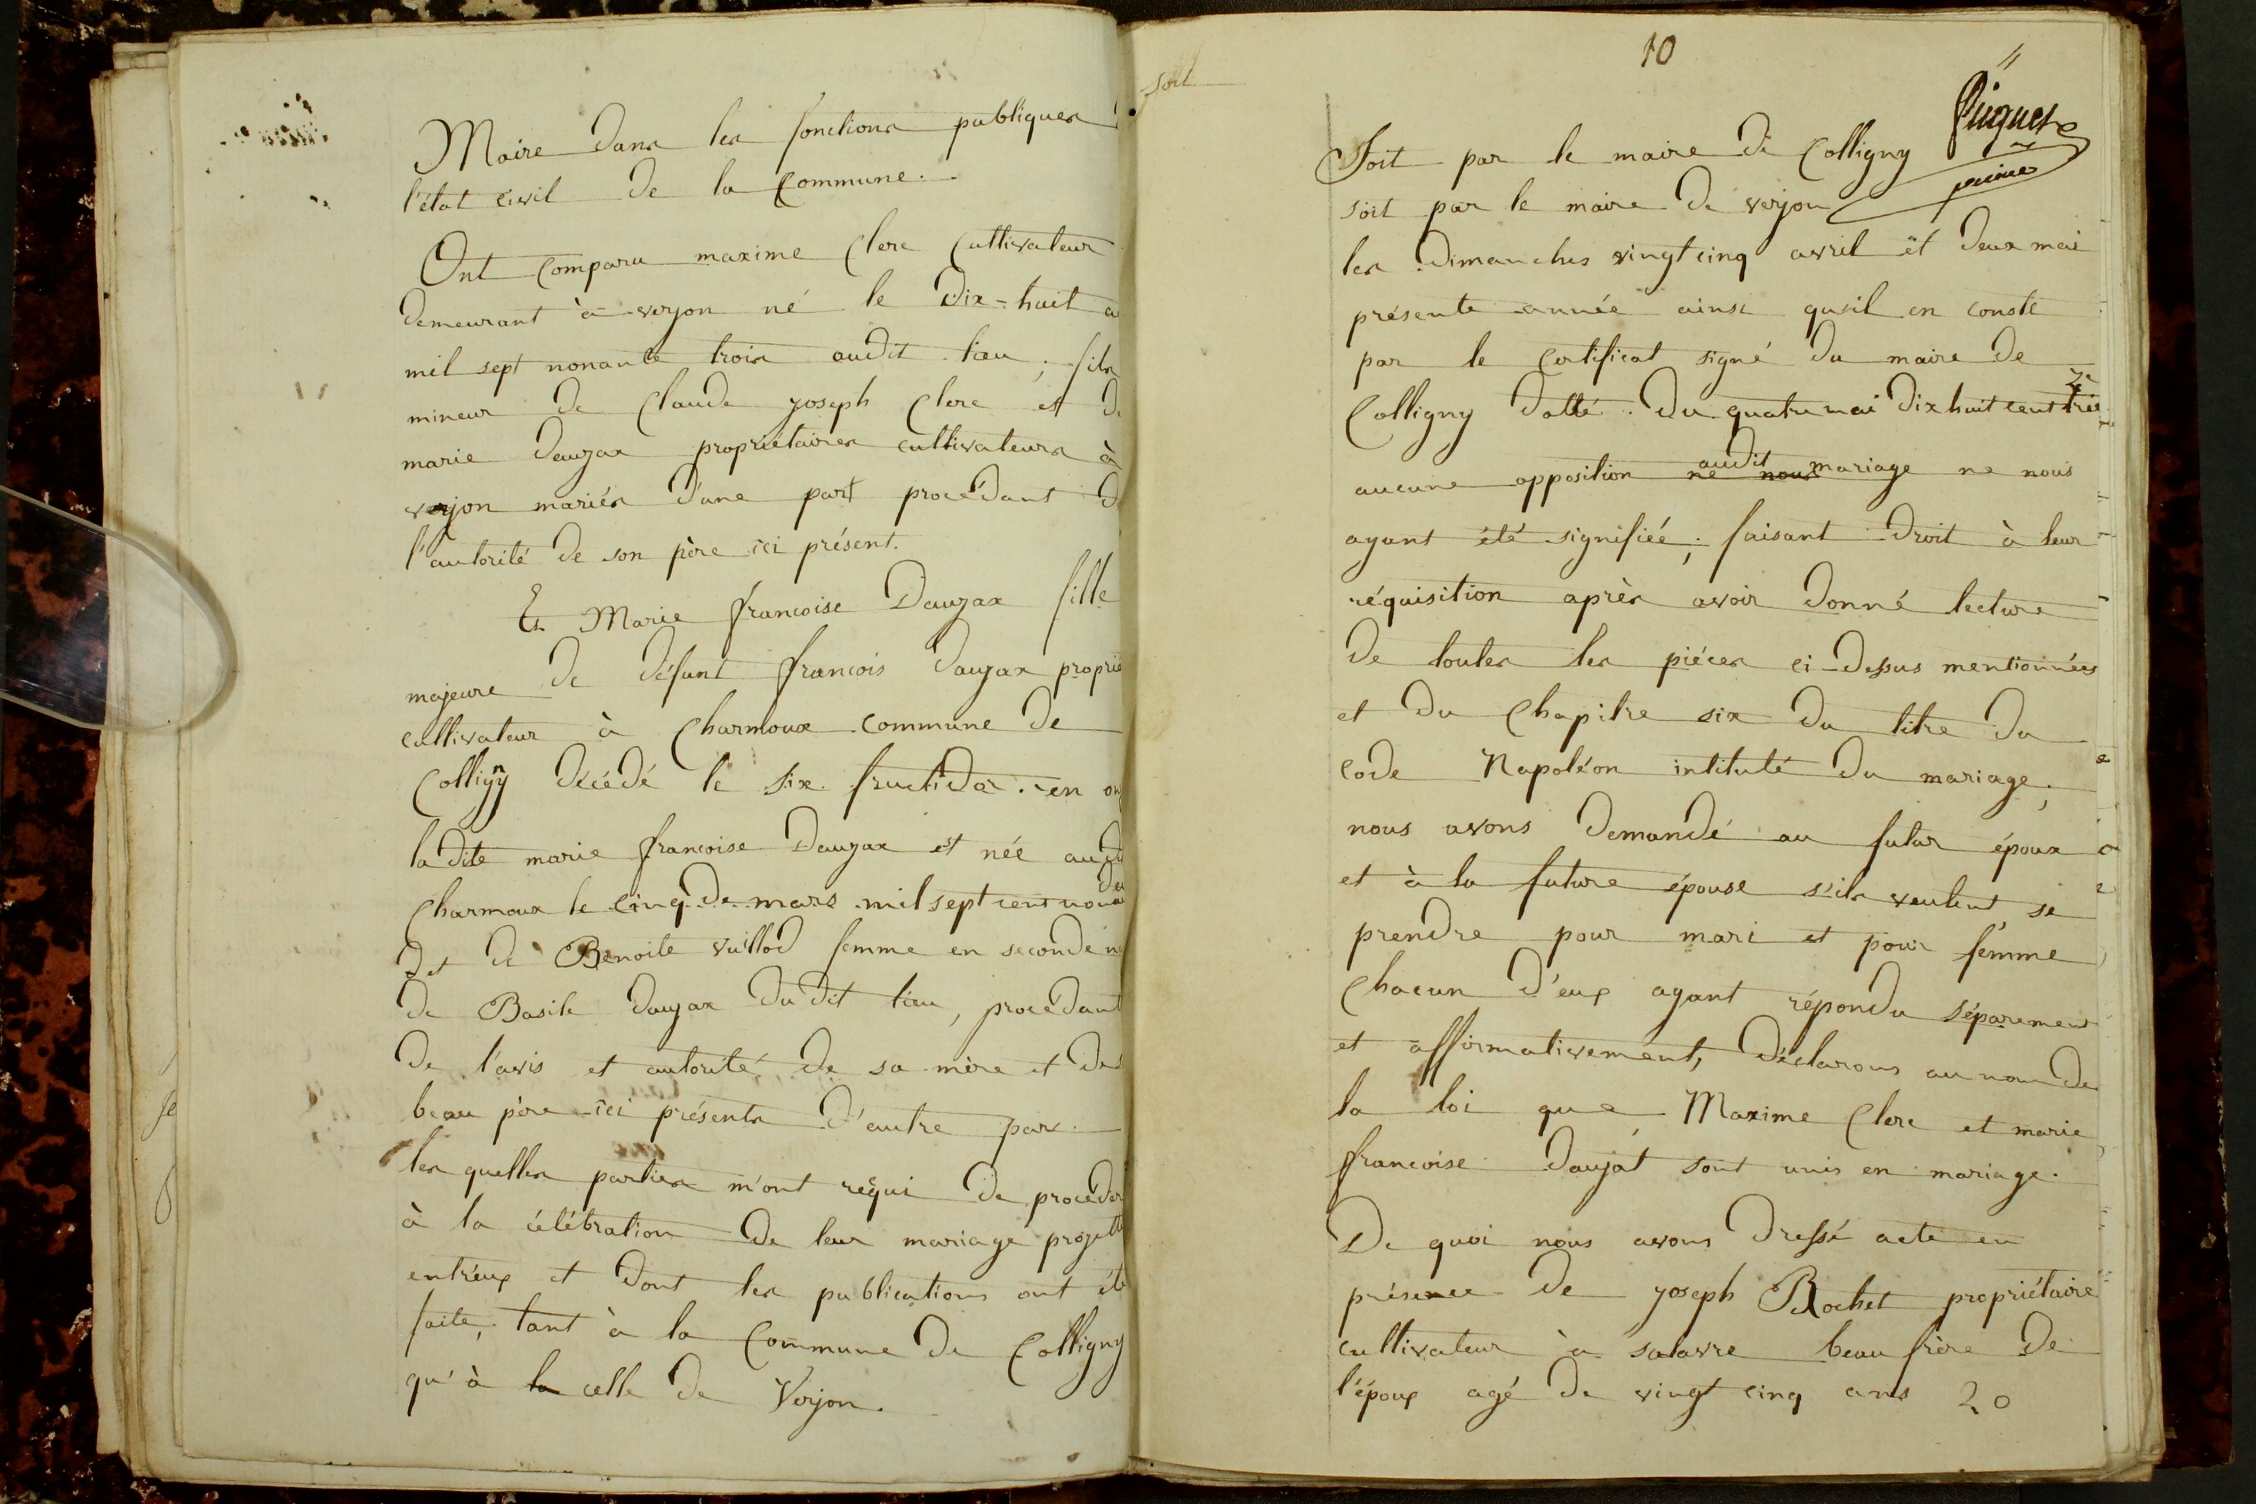 Maire dans les fonctions publiques
l'état civil de la Commune.
Ont comparu maxime Clere Cultivateur
demeurant à verjon né le dix-huit a
mil sept nonante trois audit lieu, fils
mineur de Claude yoseph Clere et de
marie daujax propriétaires cultivateurs à
verjon mariés d'une part procédant d
l'autorité de son père ici présent.
Et Marie françoise Daujax fille
majeure de défunt françois daujax proprié
cultivateur à Charmoux commune de
Colligny décédé le six fructidor en on
la dite marie françoise Daujax est née audi
Charmoux le cinq de mars mil sept cent nona
deu
et de Benoite vuillod femme en seconde n
de Basile daujax dudit lieu, procédant
de l'avis et autorité de sa mère et de
beau père ici présents d'autre par
les quelles parties m'ont réqui de procéder
à la célébration de leur mariage projetté
entréux et dont les publications ont été
faite, tant à la Commune de Colligny
qu'à la celle de Verjon.
soit
10
Puguet
maire
Soit par le maire de Colligny
soit par le maire de verjon
les dimanches vingt cinq avril et deux mai
présente année ainsi qu'il en conste
par le certificat signé du maire de
Colligny datté du quatre mai dix huit cent treize
aucune opposition ne nous audit mariage ne nous
ayant été signifiée; faisant droit à leur
réquisition après avoir donné lecture
de toutes les piéces ci-dessus mentionnées
et du Chapitre six du titre du
code Napoléon intitulé du mariage;
nous avons demandé au futur époux
et à la future épouse s'ils veulent se
prendre pour mari et pour femme
Chacun d'eux ayant répondu séparement
et affirmativement, déclarons au nom de
la loi que Maxime Clere et marie
françoise daujat sont unis en mariage.
De quoi nous avons dressé acte en
présence de yoseph Rochet propriétaire
cultivateur à salavre beau frère de
l'époux agé de vingt cinq ans 20